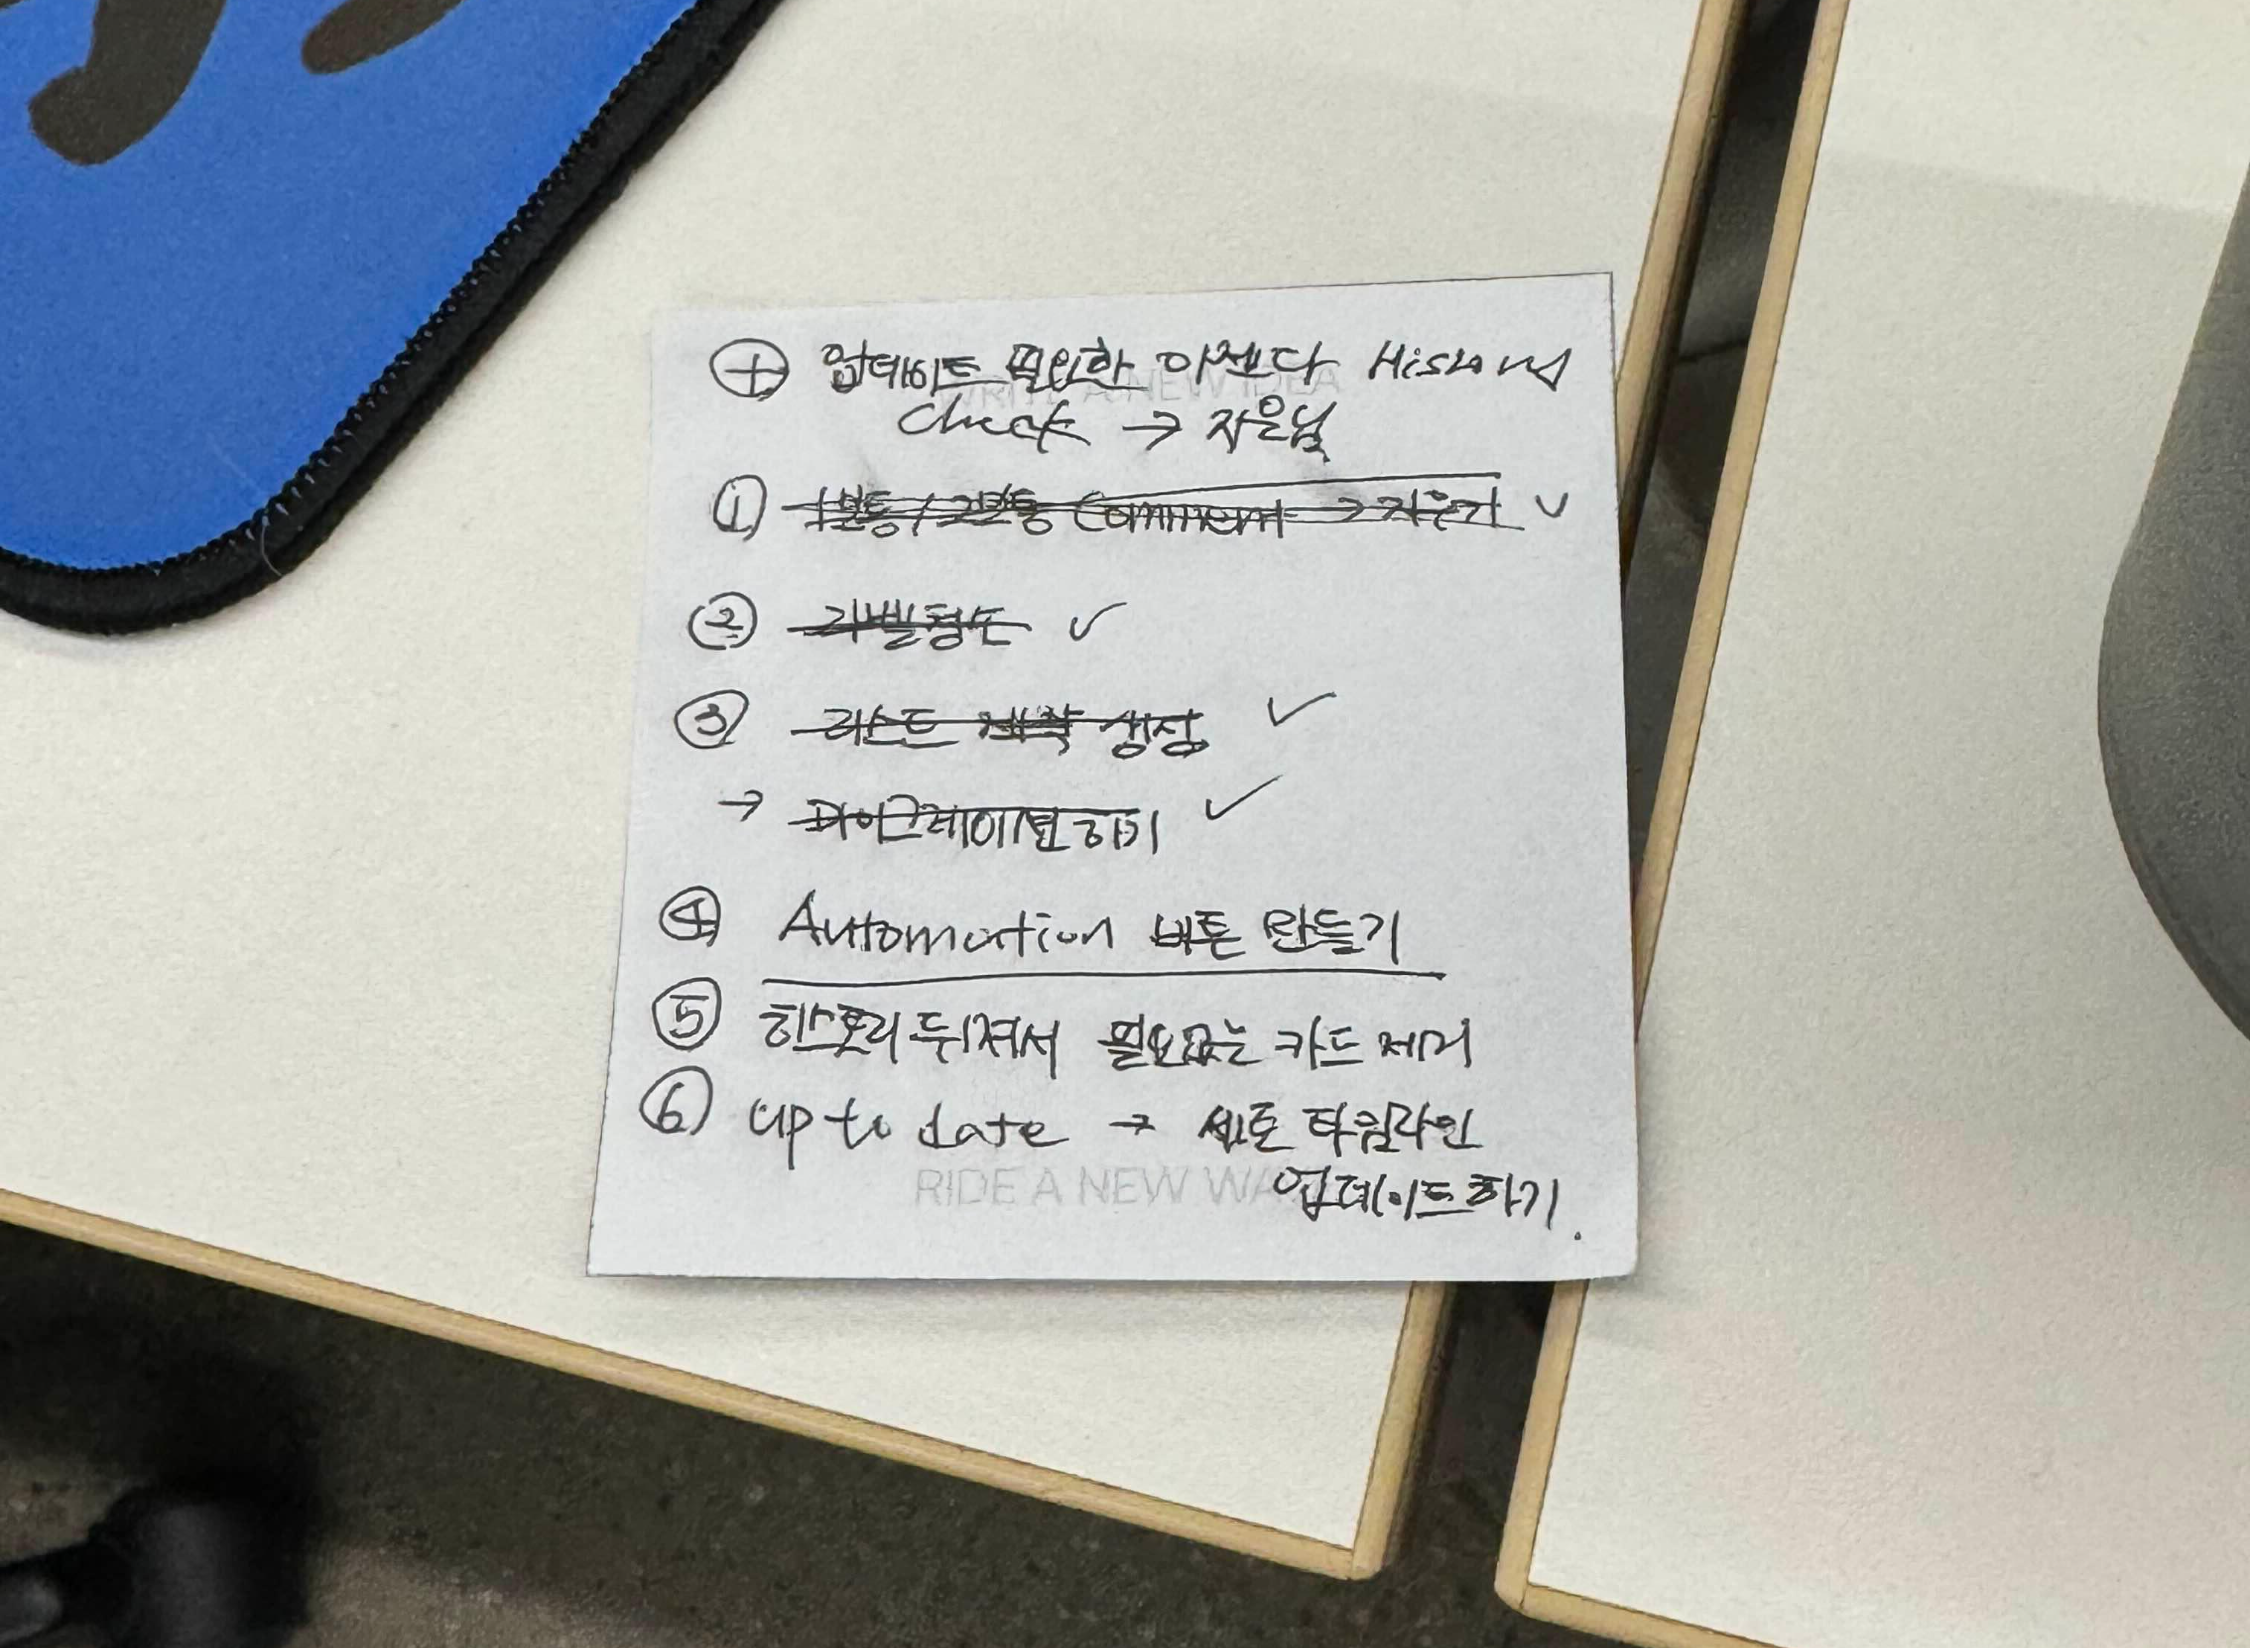 ⊕ 업데이트 필요한 아젠다 History
check → 자은님
WRITE A NEW IDEA
① Comment → 지우기 ✓
② 라벨정순 ✓
③ 리스트 생성 ✓
→ 마이그레이션하기 ✓
④ Automation 버튼 만들기
⑤ 히스토리 뒤져서 필요없는 카드 제거
⑥ up to date → 세토 타임라인
RIDE A NEW WA
업데이트하기.